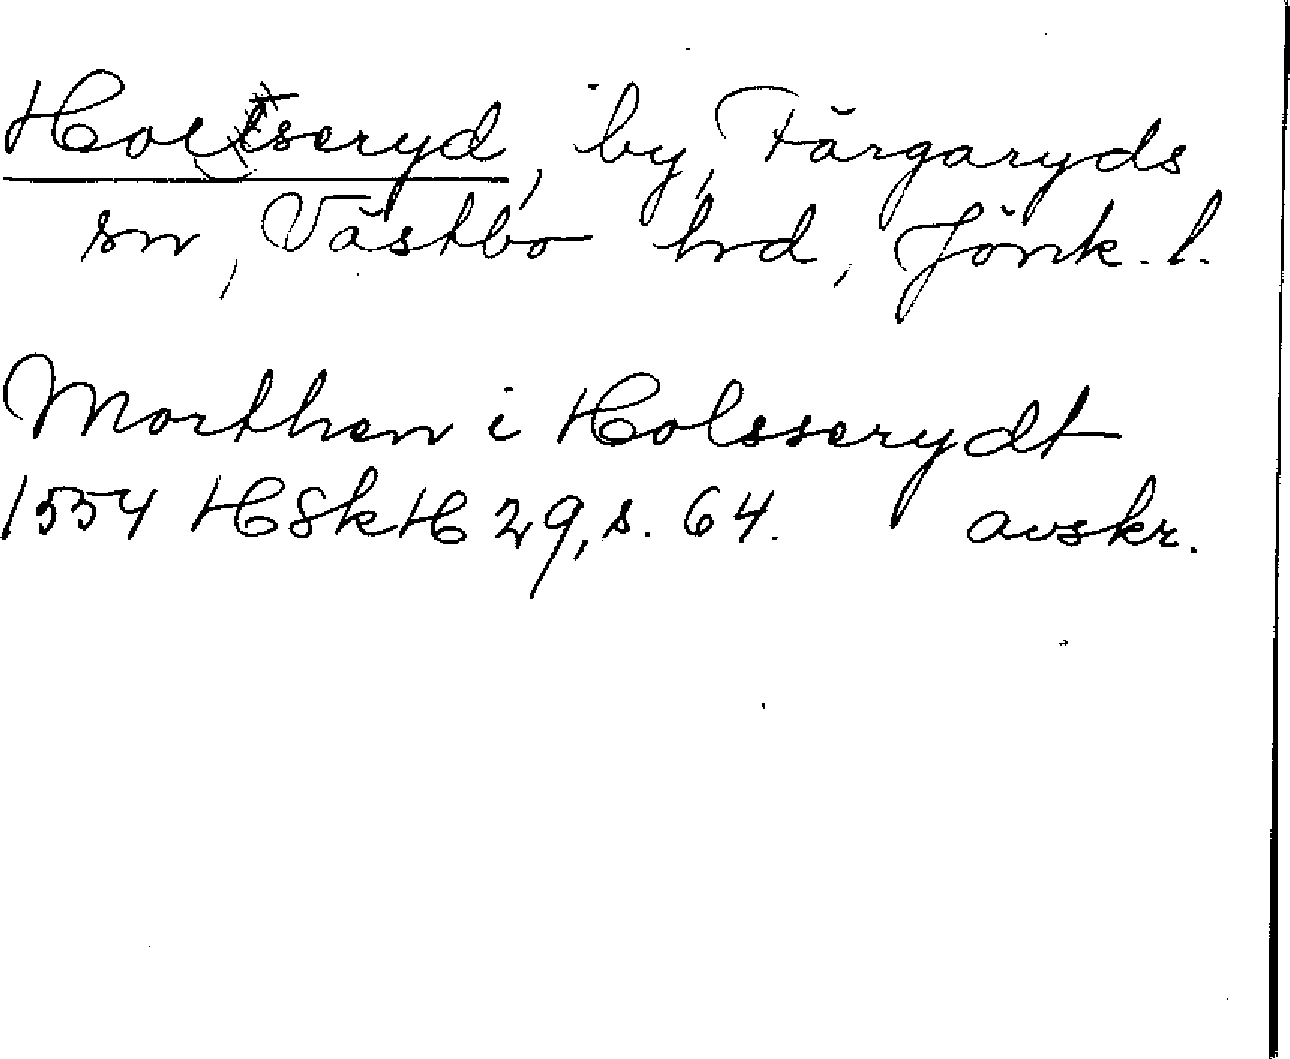 Holtseryd, by, Färgaryds
sn, Västbo hd, Jönk. l.
Morthen i Holsserydt
1554 HSkH 29, s. 64. avskr.